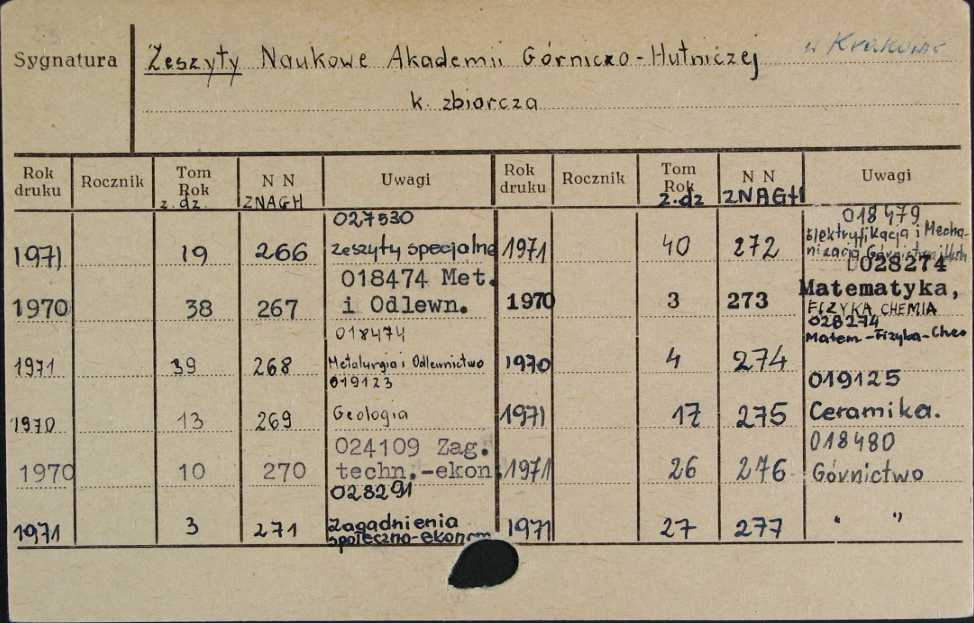 Sygnatura
Zeszyty Naukowe Akademii Górniczo-Hutniczej w Krakowie
k. zbiorcza
Rok druku Rocznik Tom Rok z. dz. N N ZNAGH Uwagi
1971 19 266 027530 zeszyty specjalne
1970 38 267 018474 Met. i Odlewn.
1971 39 268 018474 Metalurgia i Odlewnictwo
1970 13 269 019123 Geologia
1970 10 270 024109 Zag. techn.-ekon.
1971 3 271 028291 Zagadnienia społeczno-ekonom
Rok druku Rocznik Tom Rok z.dz N N ZNAGH Uwagi
1971 40 272 018479 Elektryfikacja i Mechanizacja Górnictwa i Hutn
1970 3 273 028274 Matematyka, FIZYKA CHEMIA
1970 4 274 028274 Matem-Fizyka-Chem
1971 17 275 019125 Ceramika.
1971 26 276 018480 Górnictwo
1971 27 277 " "